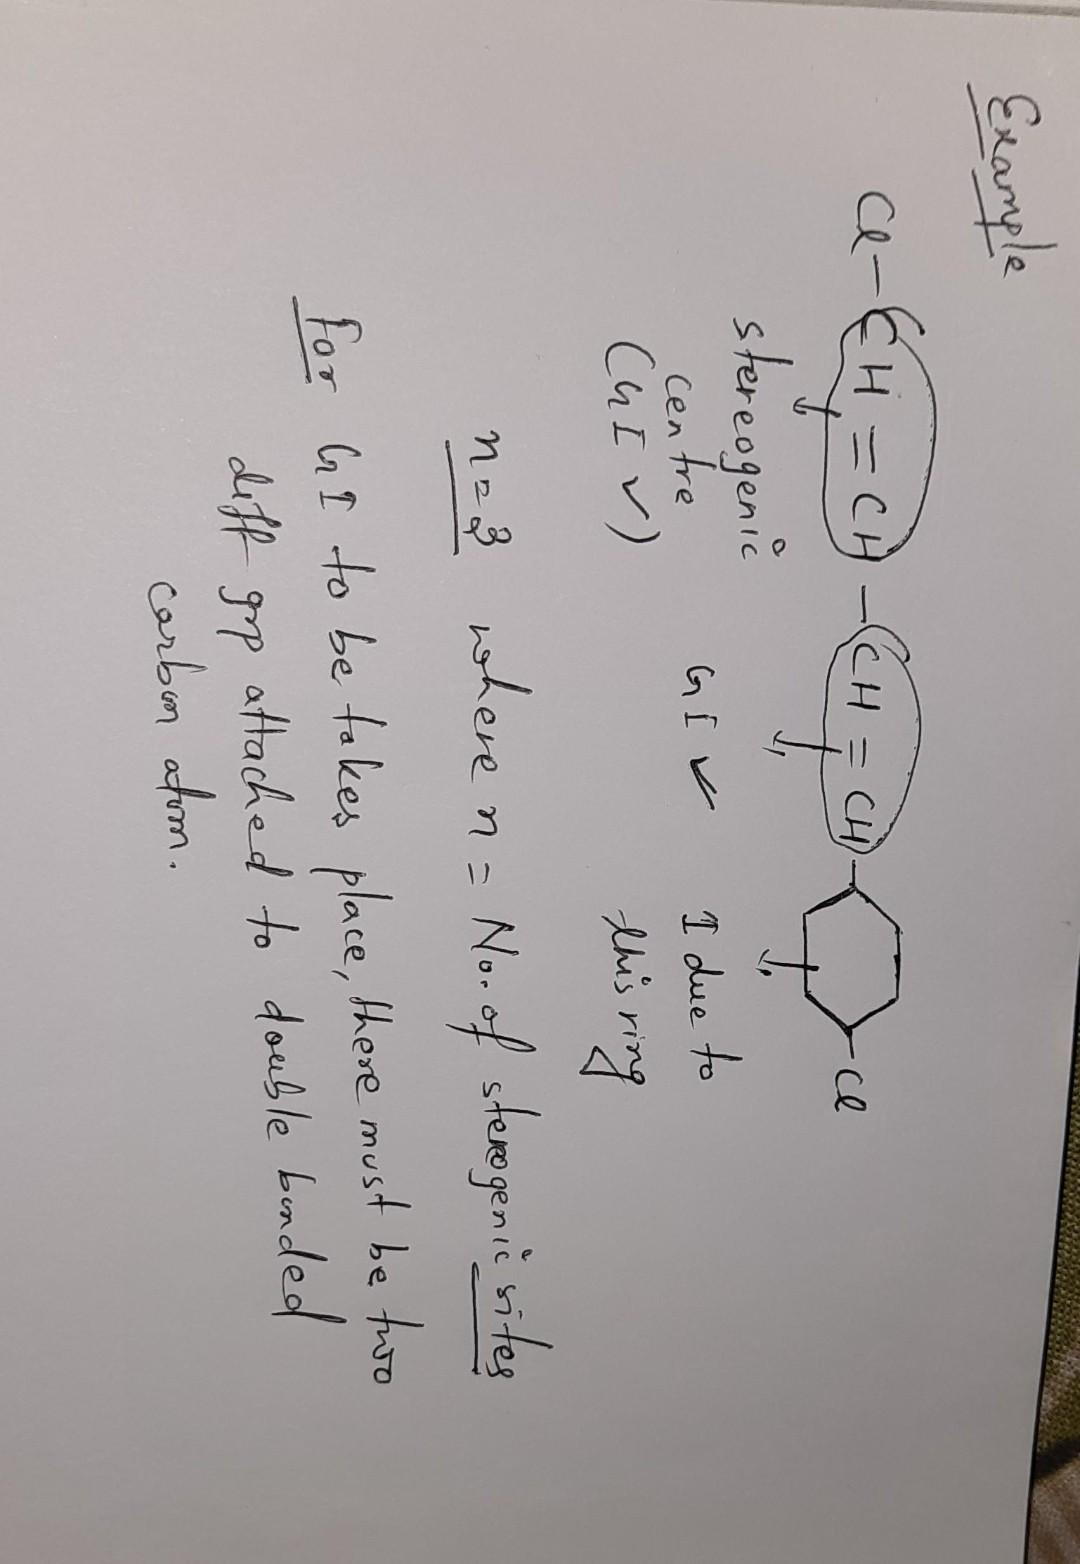 Example
Cl-CH=CH-CH=CH-⬡-Cl
stereogenic GI✓ I due to
centre this ring
(GI✓)
n=3 where n = No. of stereogenic sites
For GI to be takes place, there must be two
diff grp attached to double bonded
carbon atom.